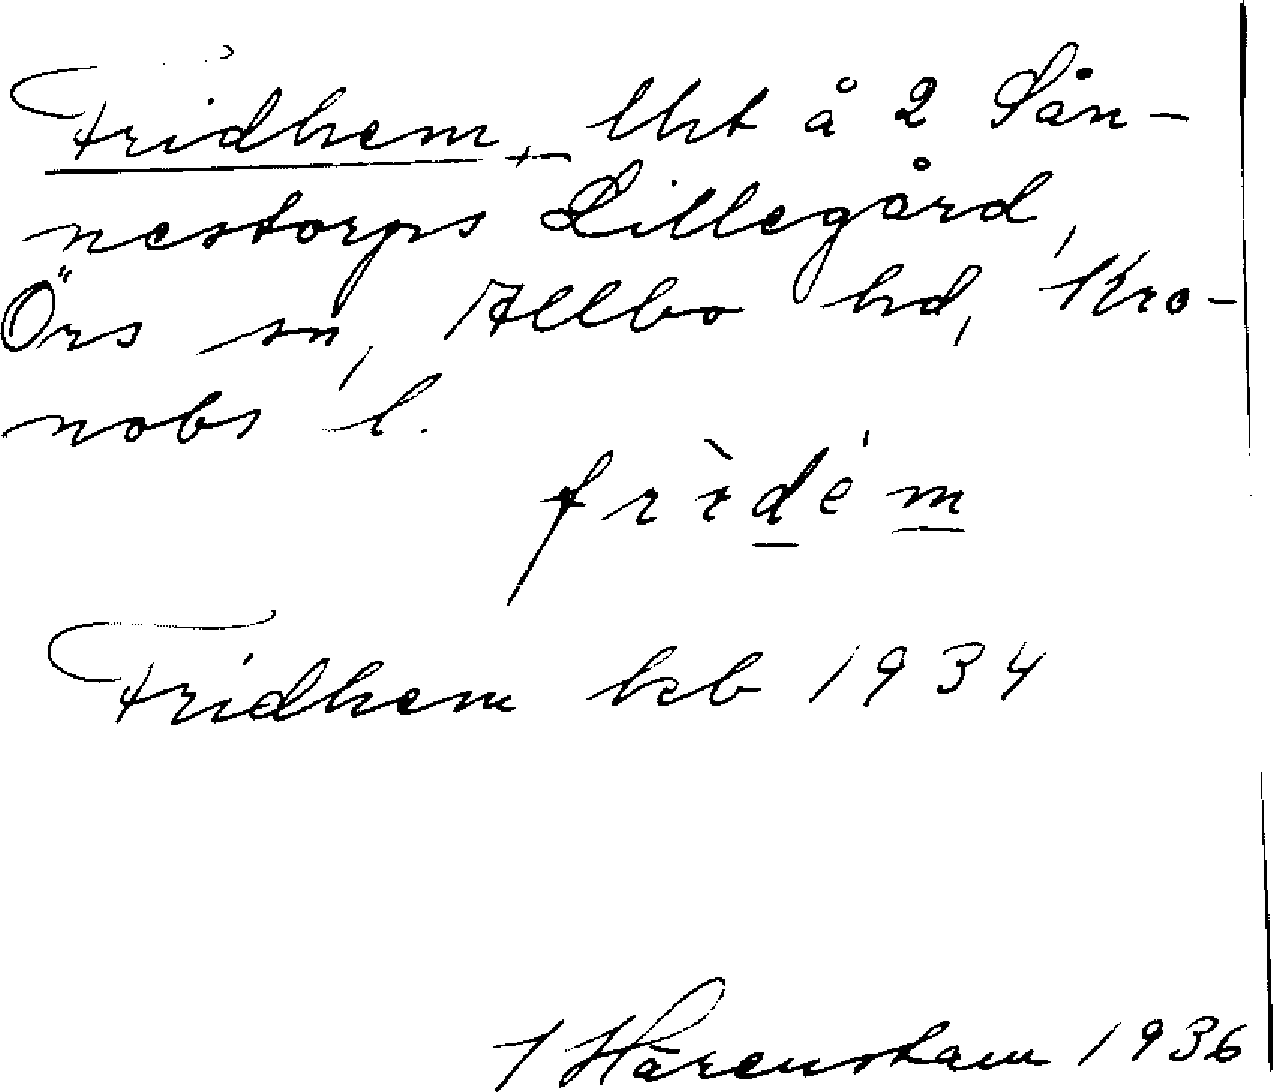 Fridhem, lht å 2 Sån-
nestorps Lillegård,
Örs sn, Allbo hd, Kro-
nobs l.
frìdém
Fridhem kb 1934
Härenstam 1936